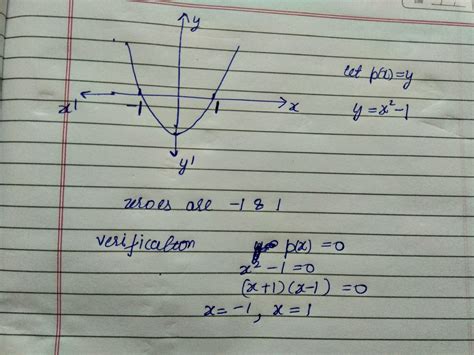 y
let p(x) = y
x' -1 1 x
y = x² - 1
y'
zeroes are -1 & 1
verification p(x) = 0
x² - 1 = 0
(x+1)(x-1) = 0
x = -1, x = 1